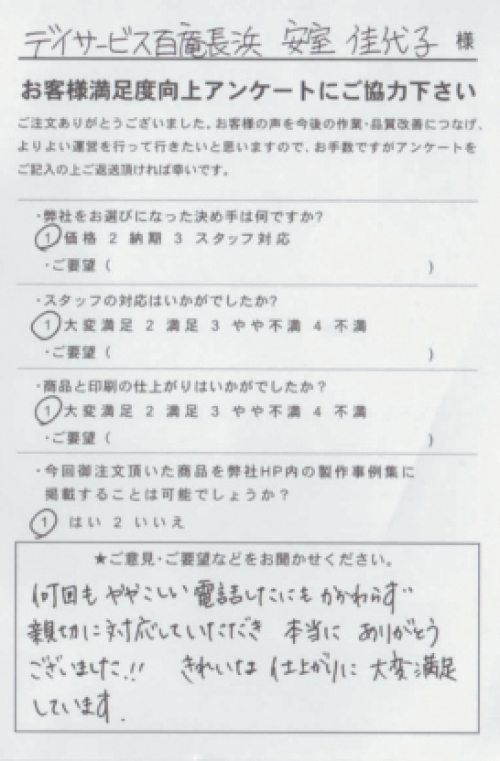 デイサービス百庵長浜 安室 佳代子 様
お客様満足度向上アンケートにご協力下さい
ご注文ありがとうございました。お客様の声を今後の作業・品質改善につなげ、
よりよい運営を行って行きたいと思いますので、お手数ですがアンケートを
ご記入の上ご返送頂ければ幸いです。
・弊社をお選びになった決め手は何ですか?
1 価格 2 納期 3 スタッフ対応
・ご要望 ( )
・スタッフの対応はいかがでしたか?
1 大変満足 2 満足 3 やや不満 4 不満
・ご要望 ( )
・商品と印刷の仕上がりはいかがでしたか?
1 大変満足 2 満足 3 やや不満 4 不満
・ご要望 ( )
・今回御注文頂いた商品を弊社HP内の製作事例集に
掲載することは可能でしょうか?
1 はい 2 いいえ
★ご意見・ご要望などをお聞かせください。
何回も ややこしい 電話したにも かかわらず
親切に対応していただき 本当に ありがとう
ございました!! きれいな 仕上がりに 大変満足
しています.